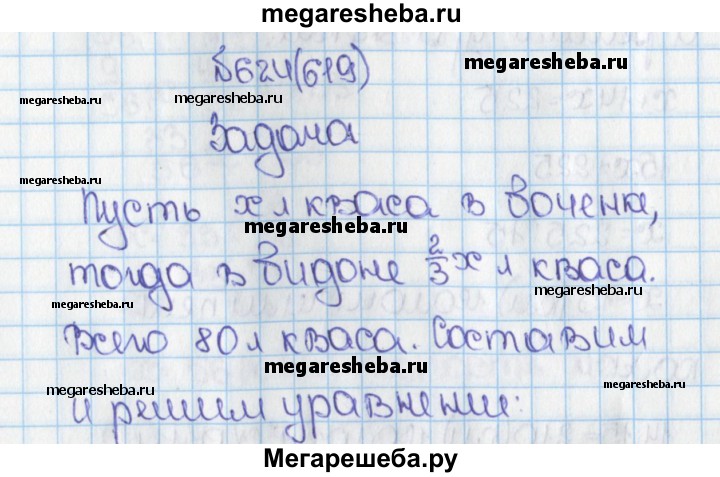 megaresheba.ru
№624(619)
megaresheba.ru
megaresheba.ru
Задача
megaresheba.ru
Пусть х л кваса в боченке,
megaresheba.ru
тогда в бидоне 2/3 х л кваса.
megaresheba.ru
megaresheba.ru
Всего 80 л кваса. Составим
megaresheba.ru
megaresheba.ru
megaresheba.ru
и решим уравнение:
Мегарешеба.ру